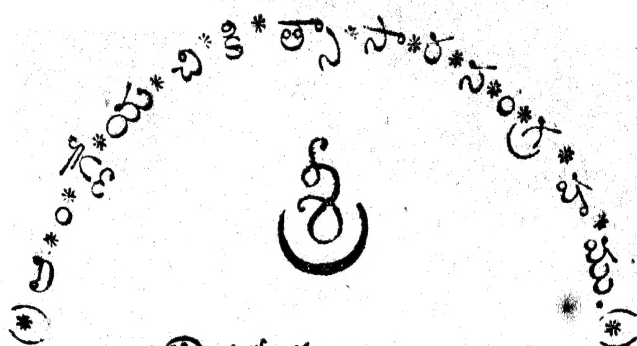 (*) ఆ * ం * గ్లే * య * చి * కి * త్సా * సా * ర * స * ం * గ్ర * హ * ము. (*)
శ్రీ